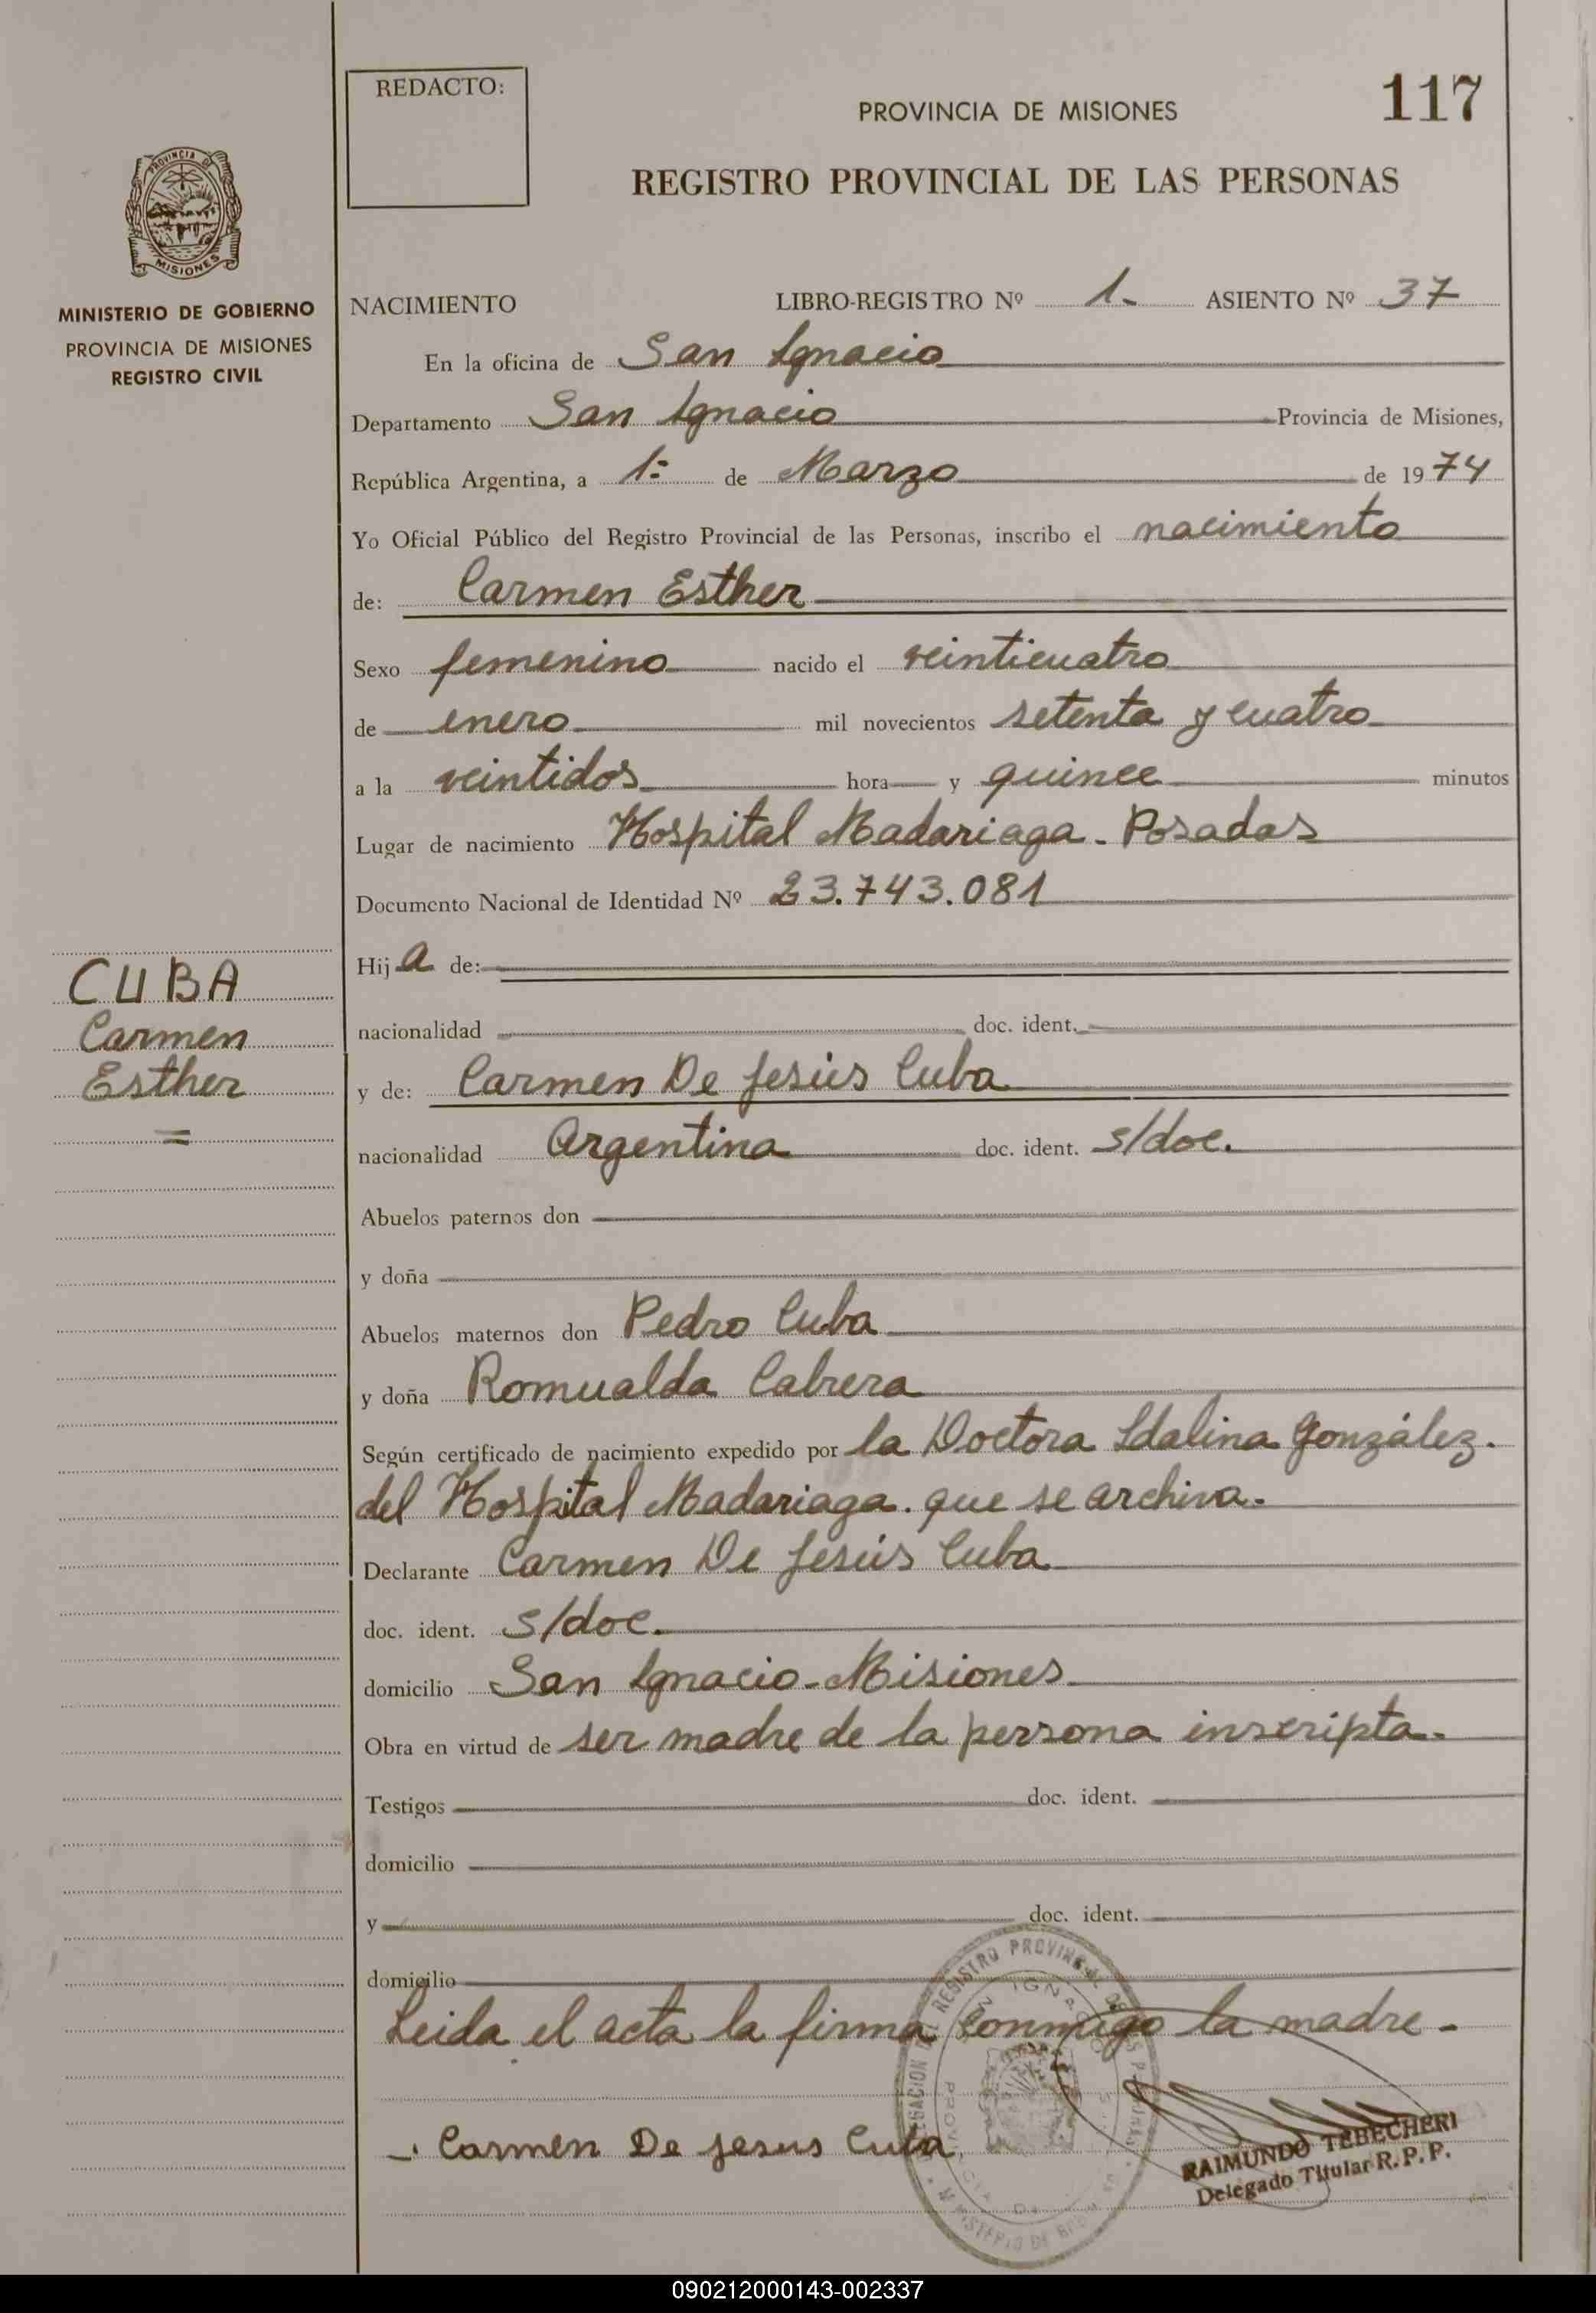 REDACTO:
117
PROVINCIA DE MISIONES
REGISTRO PROVINCIAL DE LAS PERSONAS
PROVINCIA DE
MISIONES
MINISTERIO DE GOBIERNO
PROVINCIA DE MISIONES
REGISTRO CIVIL
NACIMIENTO LIBRO-REGISTRO Nº 1.- ASIENTO Nº 37
En la oficina de San Ignacio
Departamento San Ignacio Provincia de Misiones,
República Argentina, a 1º de Marzo de 1974
Yo Oficial Público del Registro Provincial de las Personas, inscribo el nacimiento
de: Carmen Esther
Sexo femenino nacido el veinticuatro
de enero mil novecientos setenta y cuatro
a la veintidos hora y quince minutos
Lugar de nacimiento Hospital Madariaga - Posadas
Documento Nacional de Identidad Nº 23.743.081
Hija de:
nacionalidad doc. ident.
CUBA
Carmen
Esther
=
y de: Carmen De Jesús Cuba
nacionalidad Argentina doc. ident. s/doc.
Abuelos paternos don
y doña
Abuelos maternos don Pedro Cuba
y doña Romualda Cabrera
Según certificado de nacimiento expedido por la Doctora Idalina González.
del Hospital Madariaga. que se archiva.-
Declarante Carmen De Jesús Cuba
doc. ident. s/doc.
domicilio San Ignacio-Misiones
Obra en virtud de ser madre de la persona inscripta.-
Testigos doc. ident.
domicilio
y doc. ident.
domicilio
Leida el acta la firma conmigo la madre -
Carmen De Jesus Cuba
RAIMUNDO TEBECHERI
Delegado Titular R. P. P.
090212000143-002337